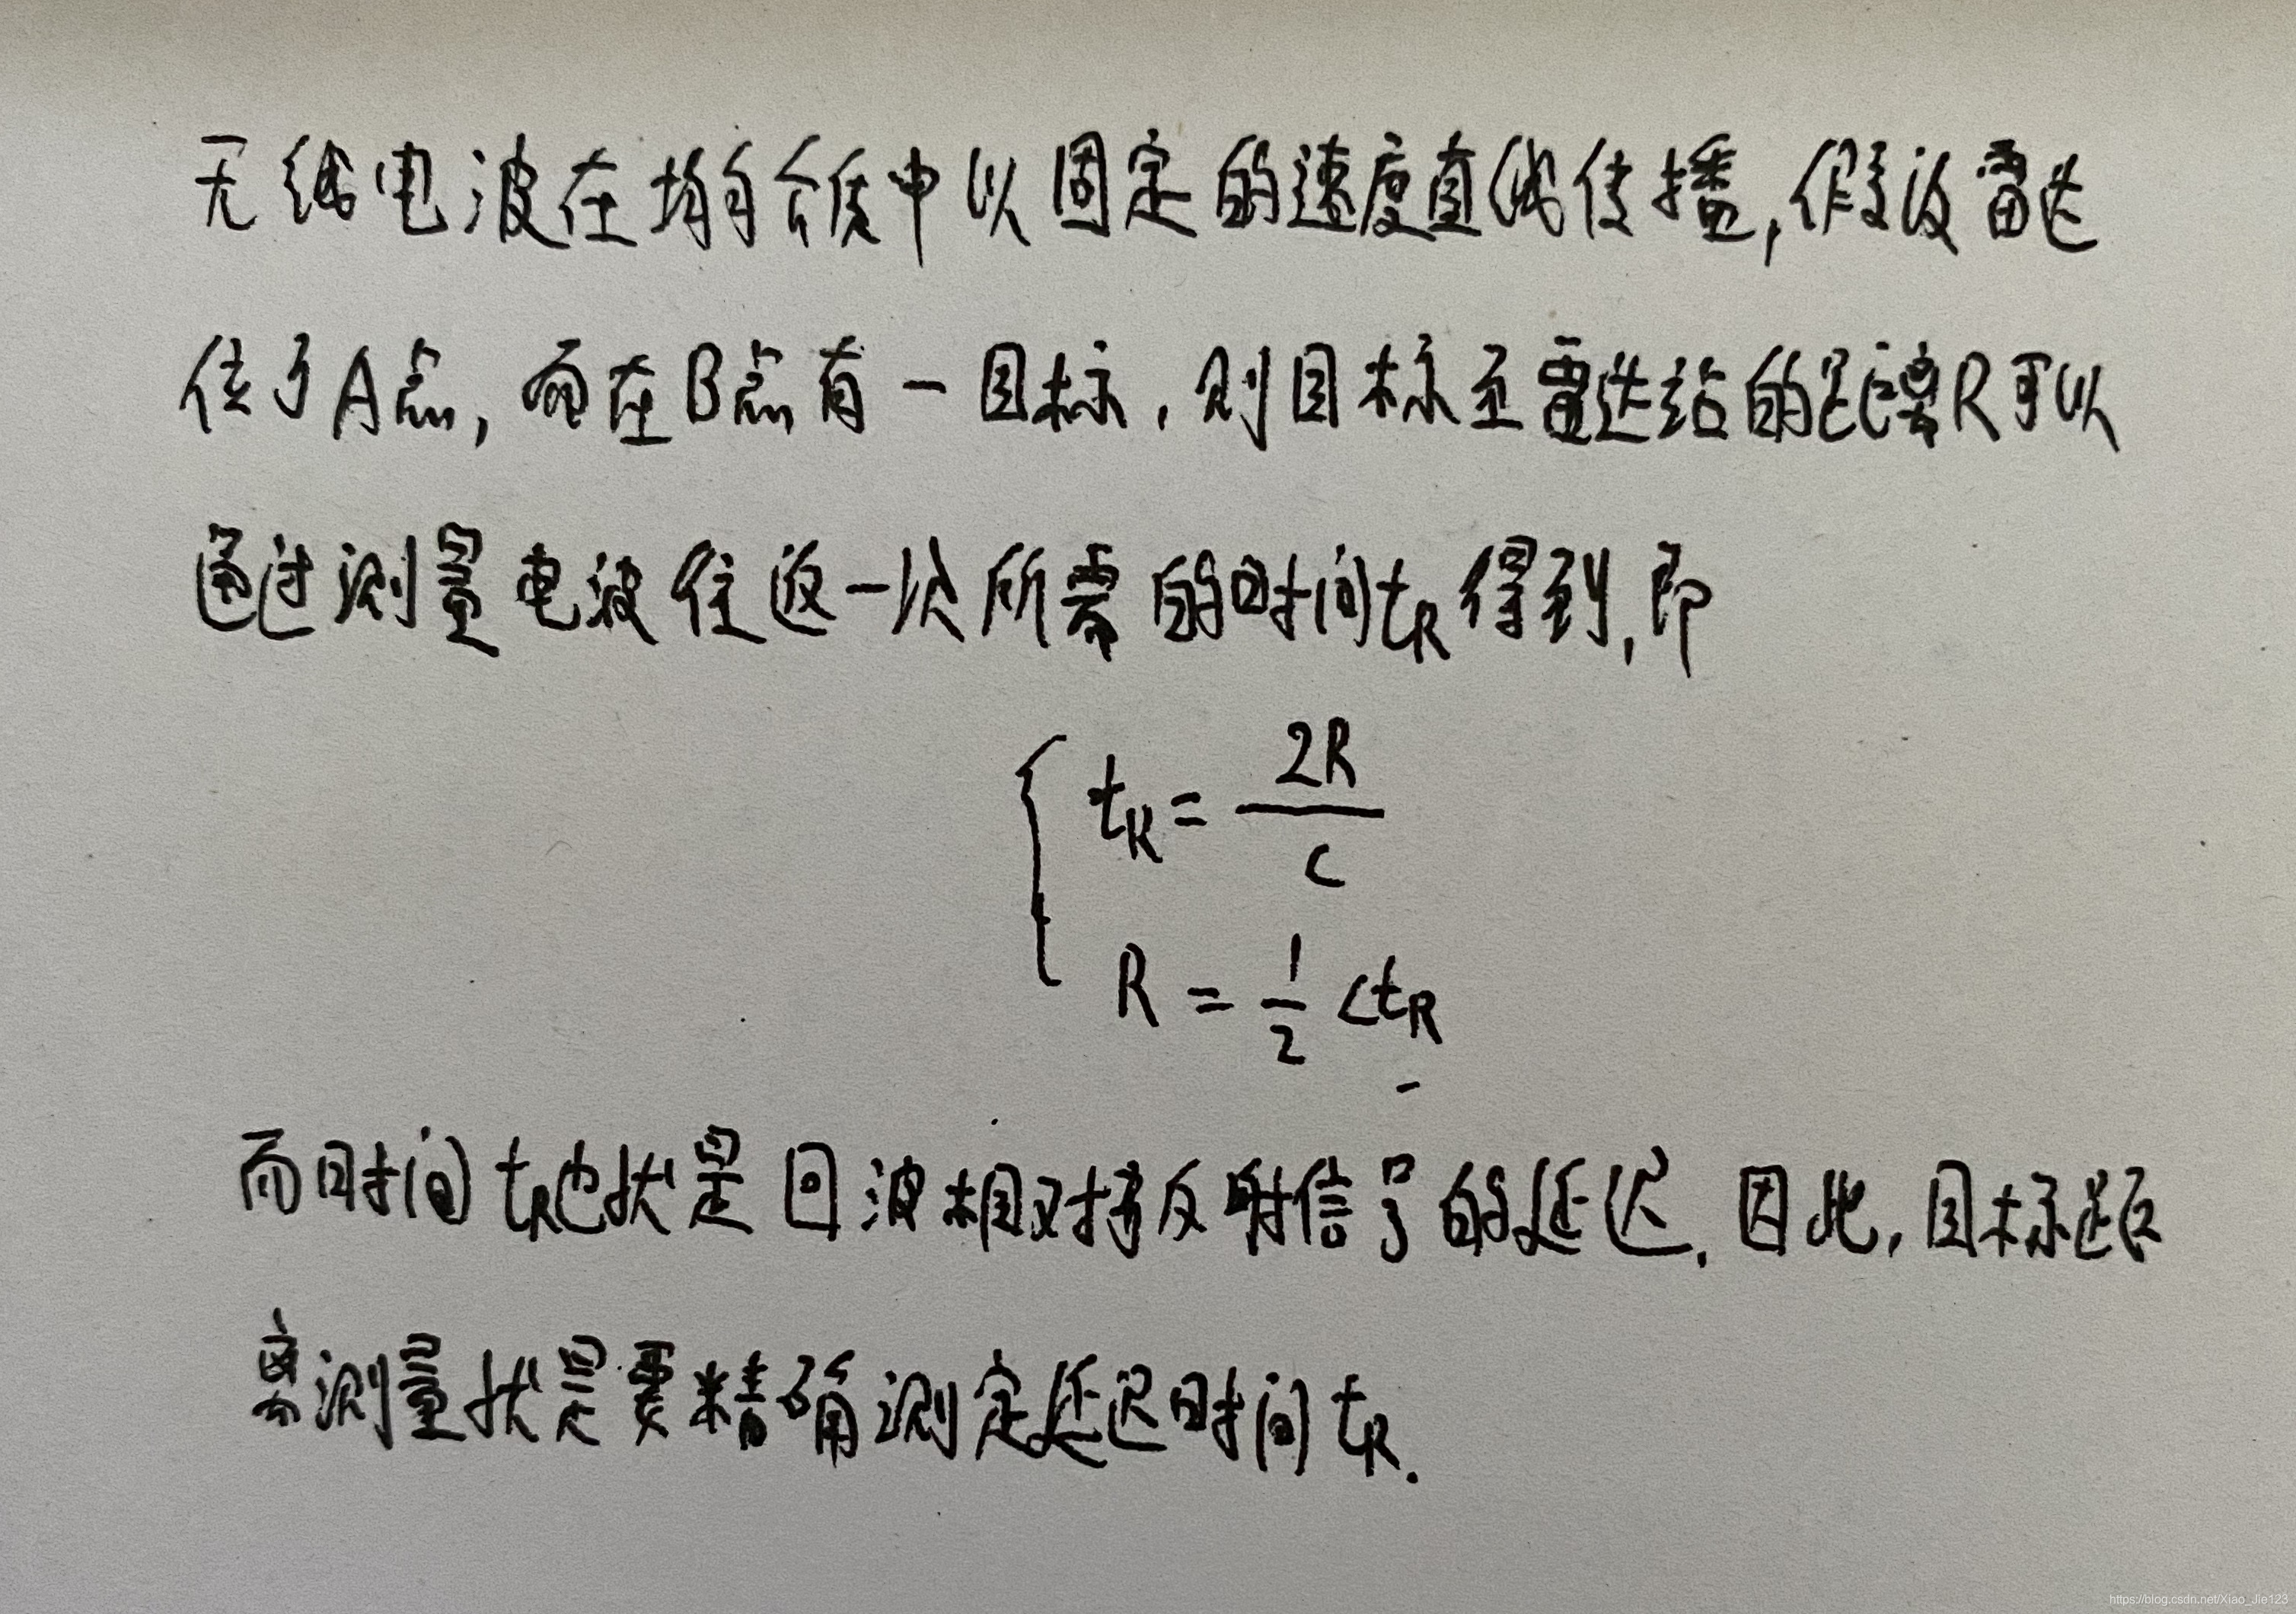 无线电波在均匀介质中以固定的速度直线传播,假设雷达
位于A点,而在B点有一目标,则目标至雷达站的距离R可以
通过测量电波往返一次所需的时间t_R得到,即
t_R = 2R/c
R = 1/2 ct_R
而时间t_R也就是回波相对于反射信号的延迟.因此,目标距
离测量就是要精确测定延迟时间t_R.
https://blog.csdn.net/Xiao_Jie123